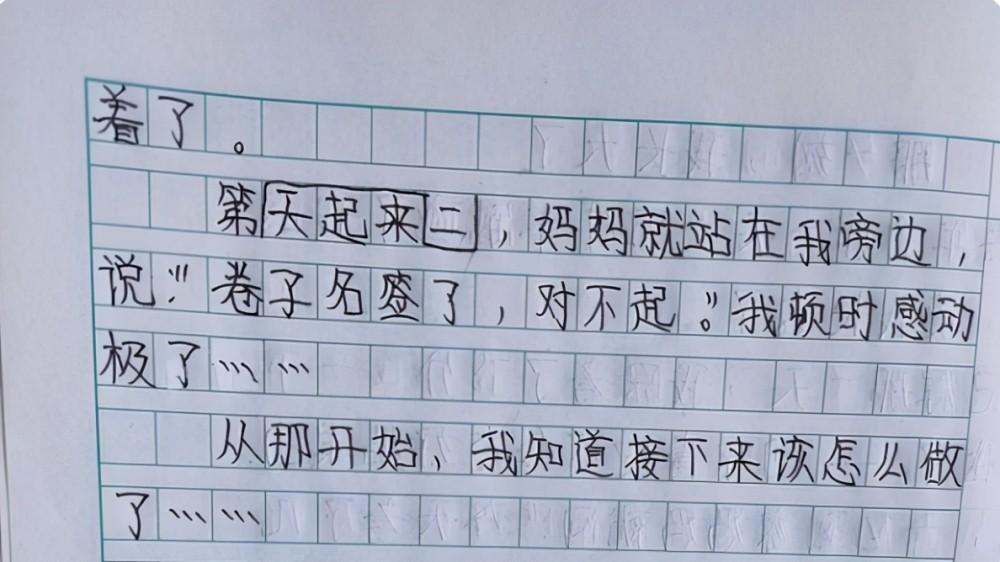 着了。
第天起来二，妈妈就站在我旁边，
说：“卷子名签了，对不起。”我顿时感动
极了……
从那开始、我知道接下来该怎么做
了……